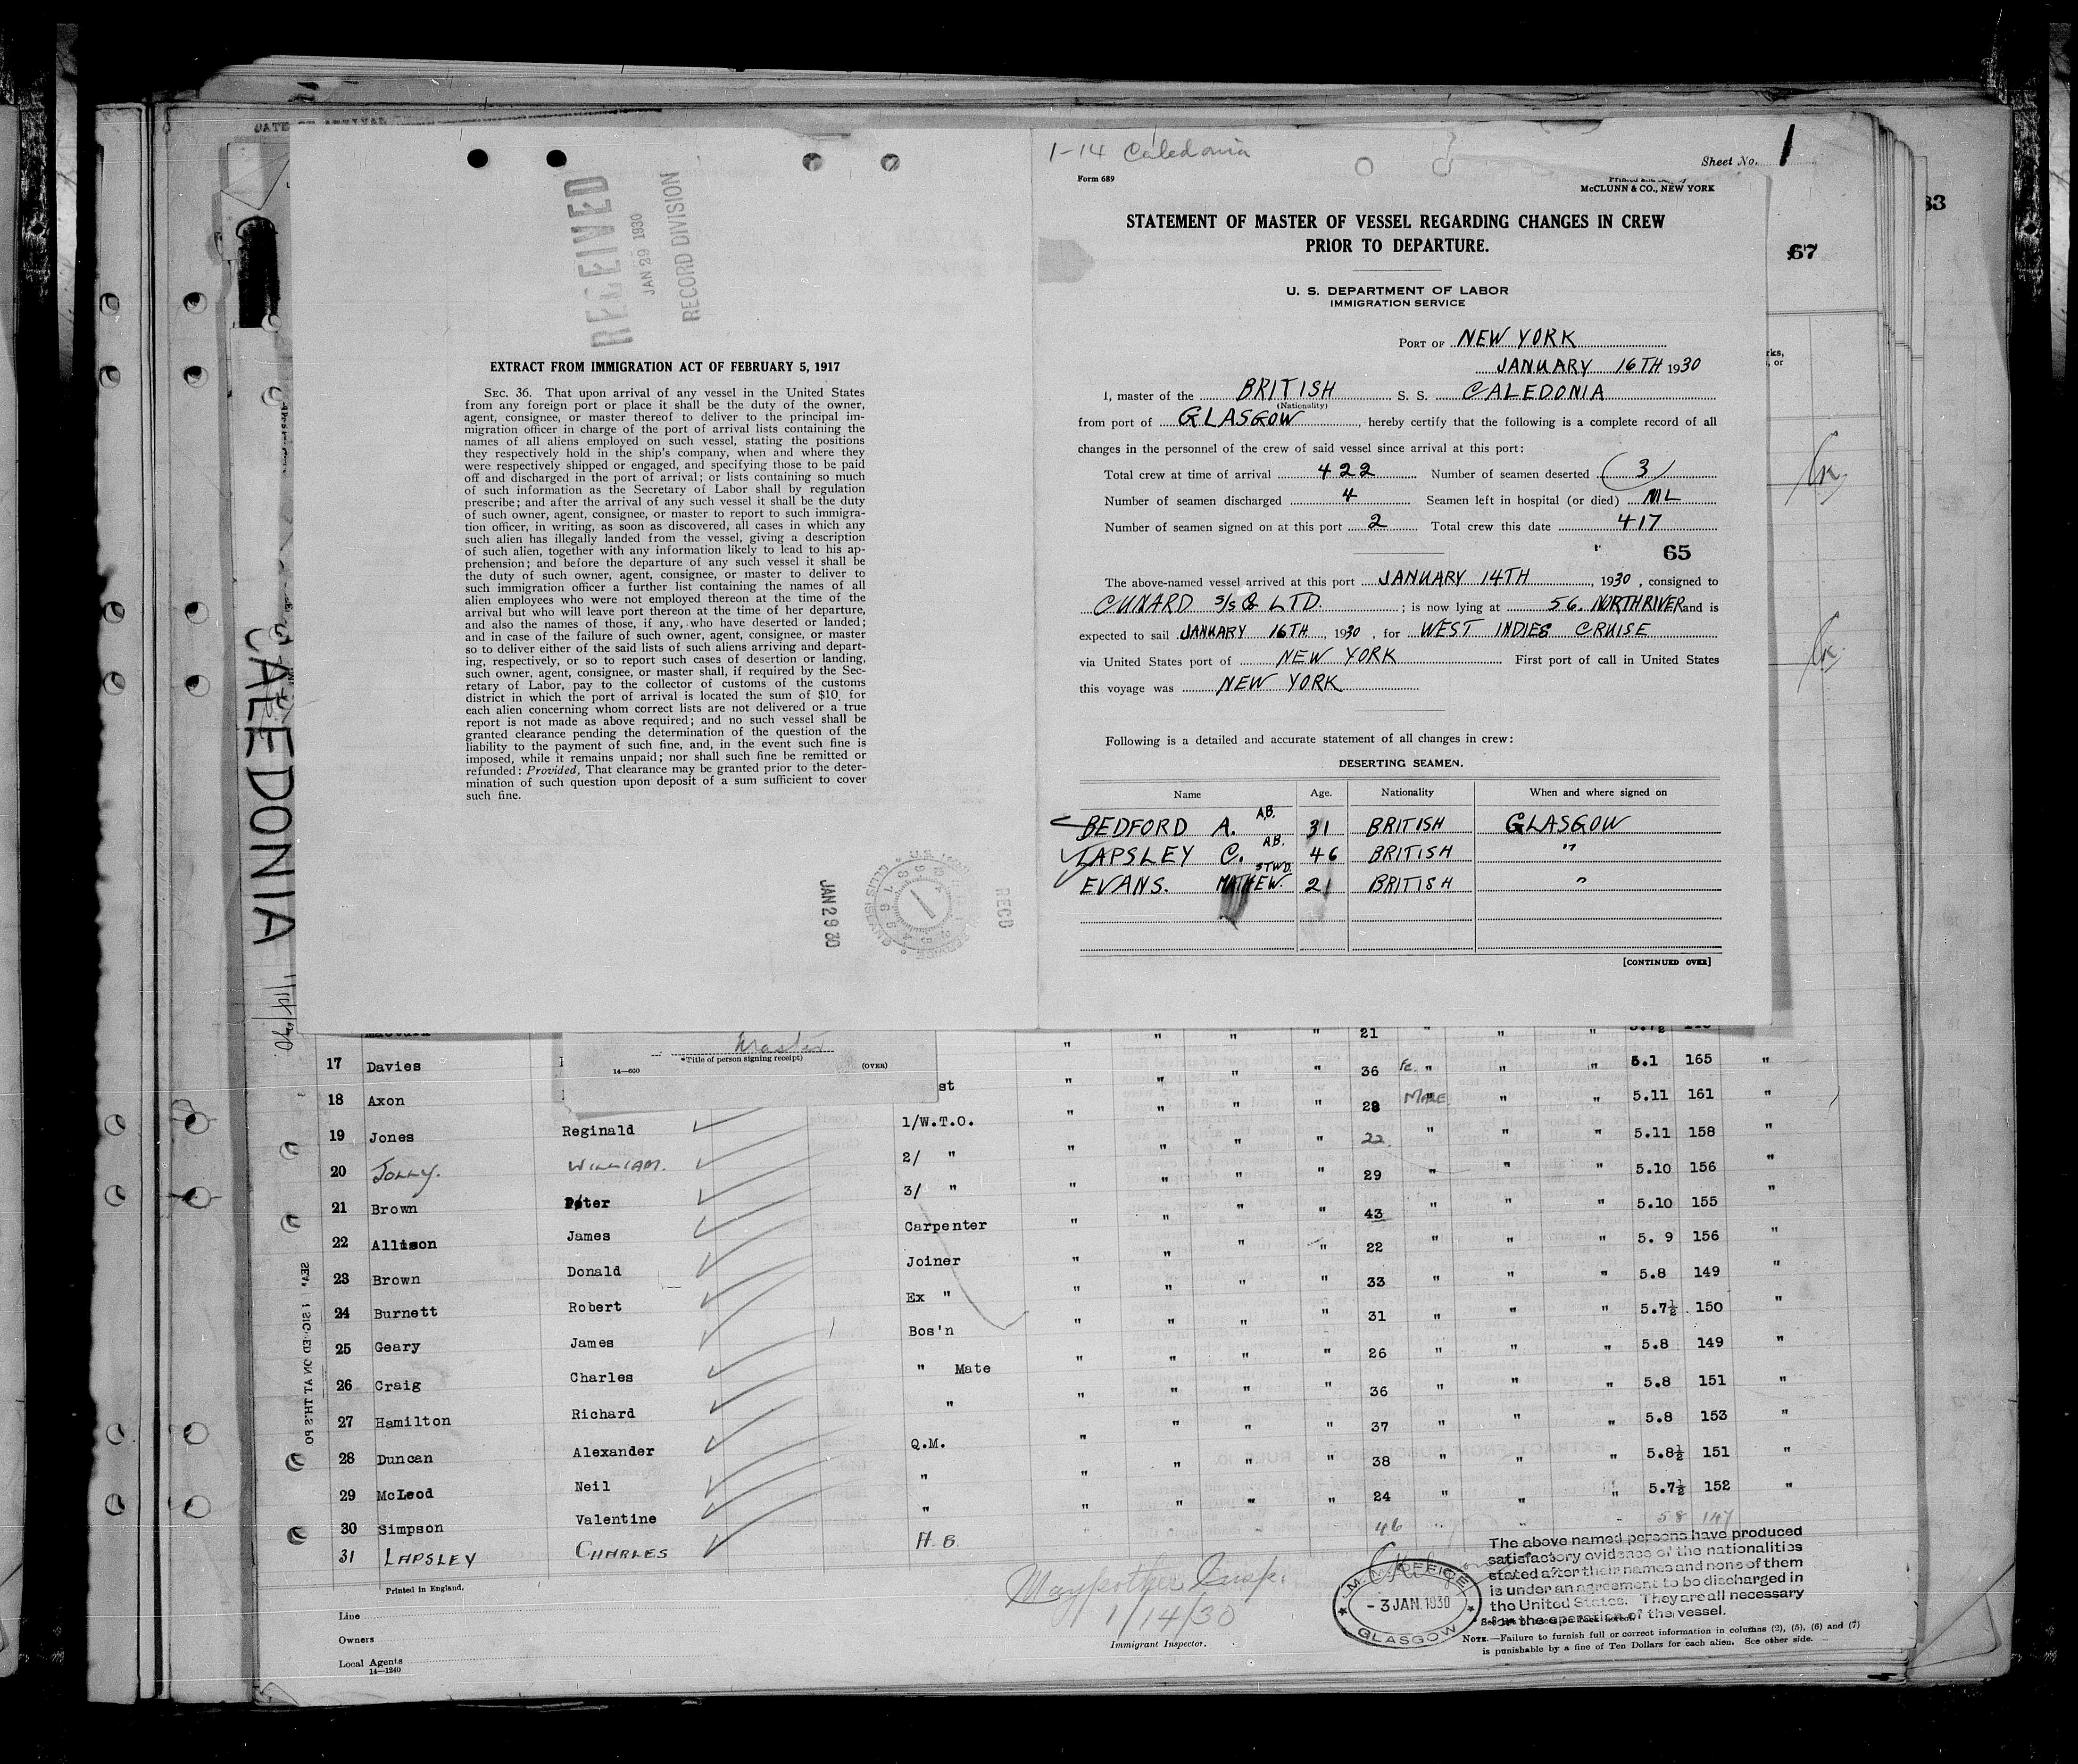 DATE OF ARRIVAL
RECEIVED
JAN 29 1930
RECORD DIVISION
EXTRACT FROM IMMIGRATION ACT OF FEBRUARY 5, 1917
SEC. 36. That upon arrival of any vessel in the United States
from any foreign port or place it shall be the duty of the owner,
agent, consignee, or master thereof to deliver to the principal im-
migration officer in charge of the port of arrival lists containing the
names of all aliens employed on such vessel, stating the positions
they respectively hold in the ship's company, when and where they
were respectively shipped or engaged, and specifying those to be paid
off and discharged in the port of arrival; or lists containing so much
of such information as the Secretary of Labor shall by regulation
prescribe; and after the arrival of any such vessel it shall be the duty
of such owner, agent, consignee, or master to report to such immigra-
tion officer, in writing, as soon as discovered, all cases in which any
such alien has illegally landed from the vessel, giving a description
of such alien, together with any information likely to lead to his ap-
prehension; and before the departure of any such vessel it shall be
the duty of such owner, agent, consignee, or master to deliver to
such immigration officer a further list containing the names of all
alien employees who were not employed thereon at the time of the
arrival but who will leave port thereon at the time of her departure,
and also the names of those, if any, who have deserted or landed;
and in case of the failure of such owner, agent, consignee, or master
so to deliver either of the said lists of such aliens arriving and depart-
ing, respectively, or so to report such cases of desertion or landing,
such owner, agent, consignee, or master shall, if required by the Sec-
retary of Labor, pay to the collector of customs of the customs
district in which the port of arrival is located the sum of $10, for
each alien concerning whom correct lists are not delivered or a true
report is not made as above required; and no such vessel shall be
granted clearance pending the determination of the question of the
liability to the payment of such fine, and, in the event such fine is
imposed, while it remains unpaid; nor shall such fine be remitted or
refunded: Provided, That clearance may be granted prior to the deter-
mination of such question upon deposit of a sum sufficient to cover
such fine.
JAN 29 30
RECD
CALEDONIA 1/14/30.
1-14 Caledonia
Sheet No. 1
Form 689
McCLUNN & CO., NEW YORK
STATEMENT OF MASTER OF VESSEL REGARDING CHANGES IN CREW
PRIOR TO DEPARTURE.
U. S. DEPARTMENT OF LABOR
IMMIGRATION SERVICE
PORT OF NEW YORK
JANUARY 16TH 1930
I, master of the BRITISH S. S. CALEDONIA
(Nationality)
from port of GLASGOW, hereby certify that the following is a complete record of all
changes in the personnel of the crew of said vessel since arrival at this port:
Total crew at time of arrival 422 Number of seamen deserted 3
Number of seamen discharged 4 Seamen left in hospital (or died) ML
Number of seamen signed on at this port 2 Total crew this date 417
65
The above-named vessel arrived at this port JANUARY 14TH, 1930, consigned to
CUNARD S/S Co LTD.; is now lying at 56. NORTH RIVER and is
expected to sail JANUARY 16TH, 1930, for WEST INDIES CRUISE
via United States port of NEW YORK First port of call in United States
this voyage was NEW YORK
Following is a detailed and accurate statement of all changes in crew:
DESERTING SEAMEN.
Name Age. Nationality When and where signed on
BEDFORD A. A.B. 31 BRITISH GLASGOW
LAPSLEY C. A.B. 46 BRITISH "
EVANS. MATHEW. STWD. 21 BRITISH "
[CONTINUED OVER]
83
67
rks,
, or
Master
*Title of person signing receipt)
14—600 (OVER)
" " " " 21 " " "
17 Davies st " " " " 36 Fc. " " " 5.1 165 "
18 Axon " " " " 28 MALE " " 5.11 161 "
19 Jones Reginald 1/W.T.O. " " " " 22 " " " 5.11 158 "
20 JOLLY. WILLIAM. 2/ " " " " " 29 " " " 5.10 156 "
21 Brown Peter 3/ " " " " " 43 " " " 5.10 155 "
22 Allison James Carpenter " " " " 22 " " " 5. 9 156 "
23 Brown Donald Joiner " " " " 33 " " " 5.8 149 "
24 Burnett Robert Ex " " " " " 31 " " " 5.7½ 150 "
25 Geary James Bos'n " " " " 26 " " " 5.8 149 "
26 Craig Charles " Mate " " " " 36 " " " 5.8 151 "
27 Hamilton Richard " " " " " 37 " " " 5.8 153 "
28 Duncan Alexander Q.M. " " " " 38 " " " 5.8½ 151 "
29 McLeod Neil " " " " " 24 " " " 5.7½ 152 "
30 Simpson Valentine " " " " " 46 " " " 5 8 147
31 LAPSLEY CHARLES A. B.
Printed in England.
Line
Owners
Local Agents
14—1240
1/14/30
Immigrant Inspector.
M. M. OFFICE
- 3 JAN. 1930
GLASGOW
The above named persons have produced
satisfactory evidence of the nationalities
stated after their names and none of them
is under an agreement to be discharged in
the United States. They are all necessary
for the operation of the vessel.
NOTE.—Failure to furnish full or correct information in columns (2), (5), (6) and (7)
is punishable by a fine of Ten Dollars for each alien. See other side.